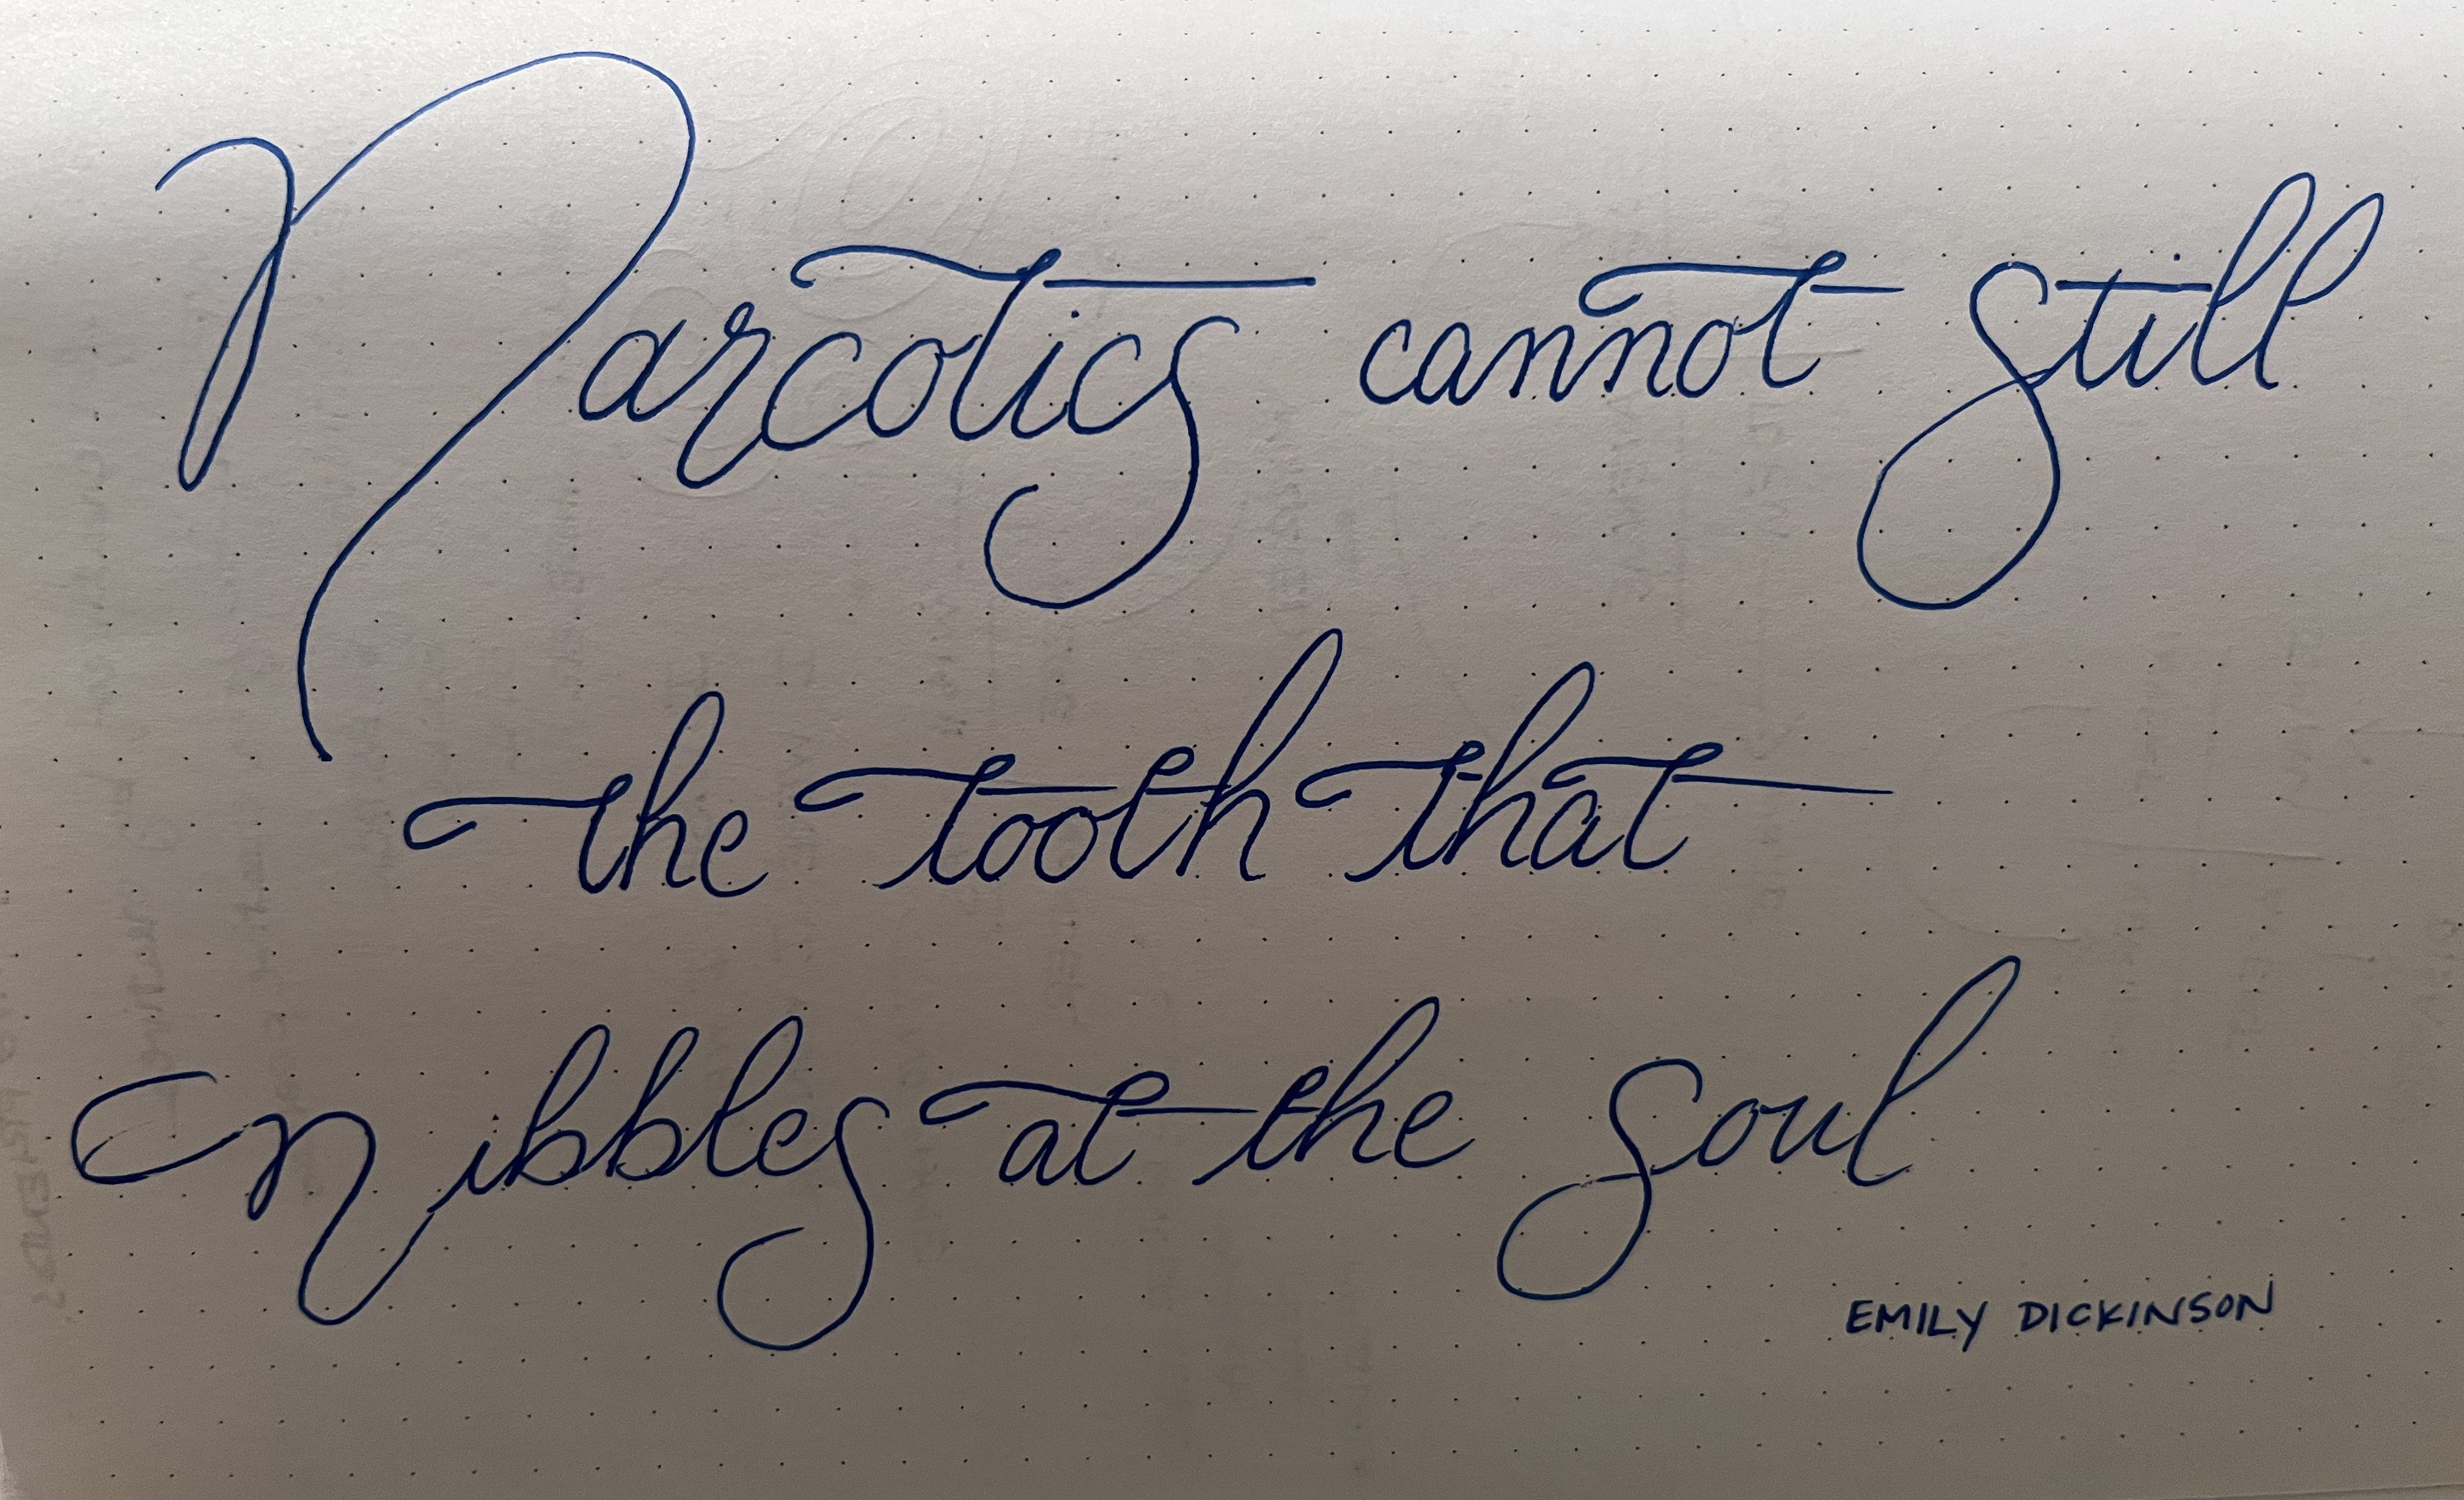 Narcotics cannot still
the tooth that
nibbles at the soul
EMILY DICKINSON